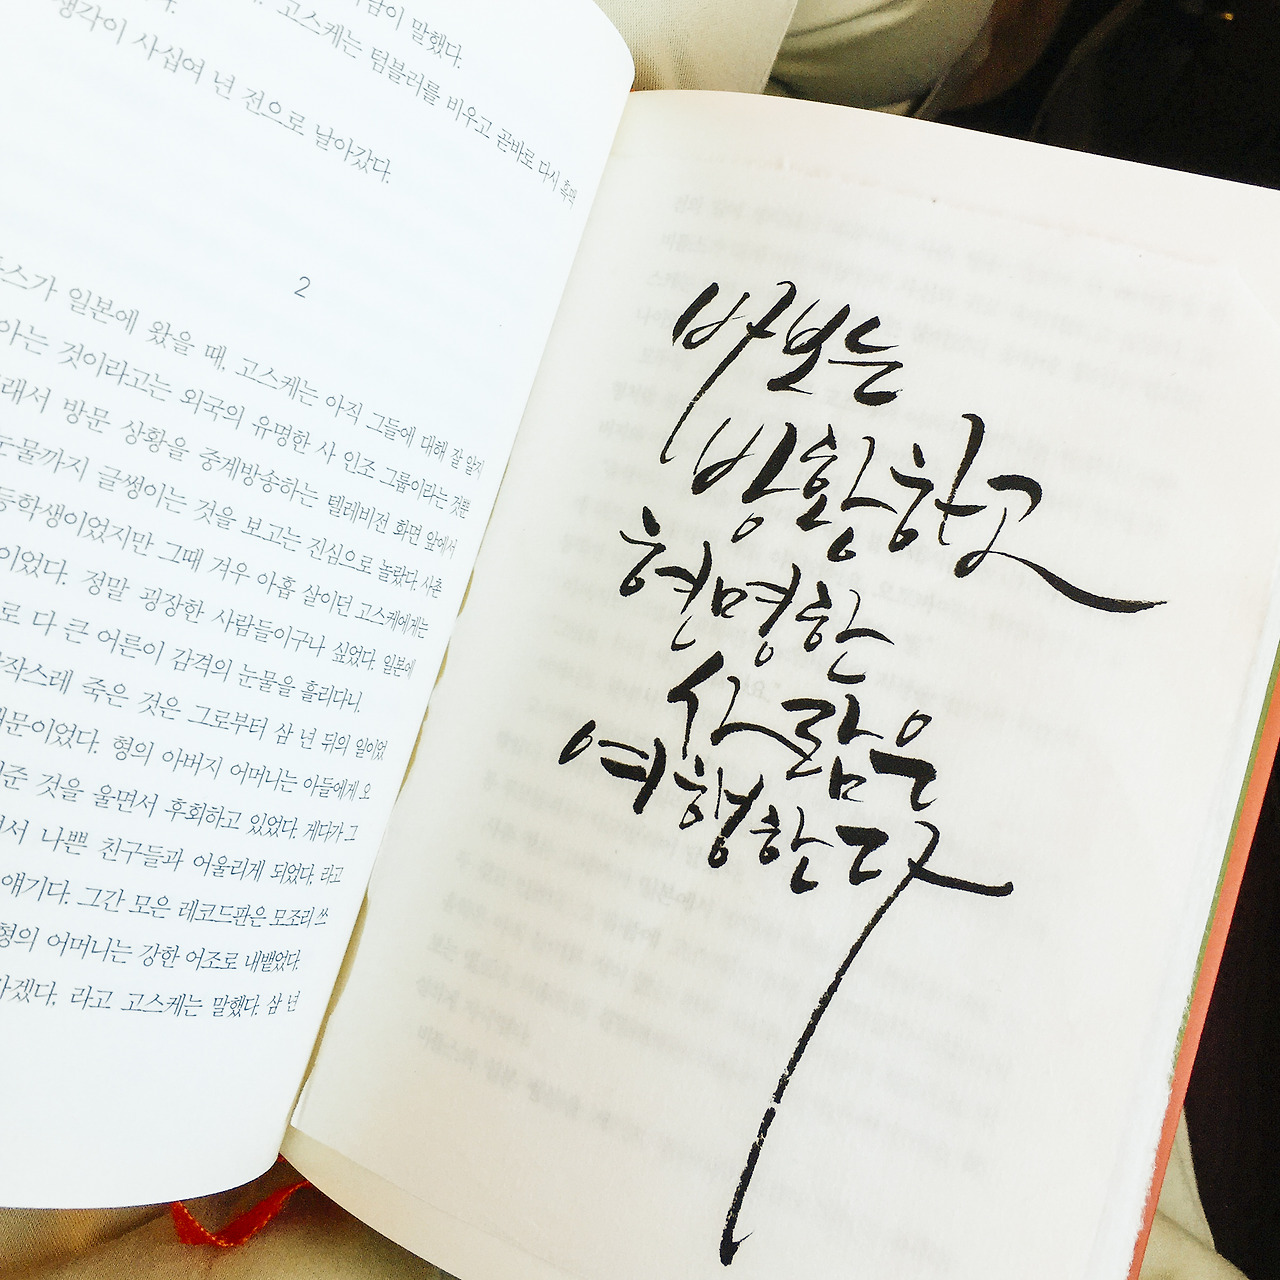 남이 말했다.
고스케는 텀블러를 비우고 곧바로 다시 흑맥
생각이 사십여 년 전으로 날아갔다.
2
틀스가 일본에 왔을 때, 고스케는 아직 그들에 대해 잘 알지
아는 것이라고는 외국의 유명한 사 인조 그룹이라는 것뿐
래서 방문 상황을 중계방송하는 텔레비전 화면 앞에서
눈물까지 글썽이는 것을 보고는 진심으로 놀랐다. 사촌
등학생이었지만 그때 겨우 아홉 살이던 고스케에게는
이었다. 정말 굉장한 사람들이구나 싶었다. 일본에
로 다 큰 어른이 감격의 눈물을 흘리다니.
작스레 죽은 것은 그로부터 삼 년 뒤의 일이었
때문이었다. 형의 아버지 어머니는 아들에게 오
준 것을 울면서 후회하고 있었다. 게다가 그
서 나쁜 친구들과 어울리게 되었다, 라고
얘기다. 그간 모은 레코드판은 모조리 쓰
형의 어머니는 강한 어조로 내뱉었다.
가겠다, 라고 고스케는 말했다. 삼 년
바보는
방황하고
현명한
사람은
여행한다